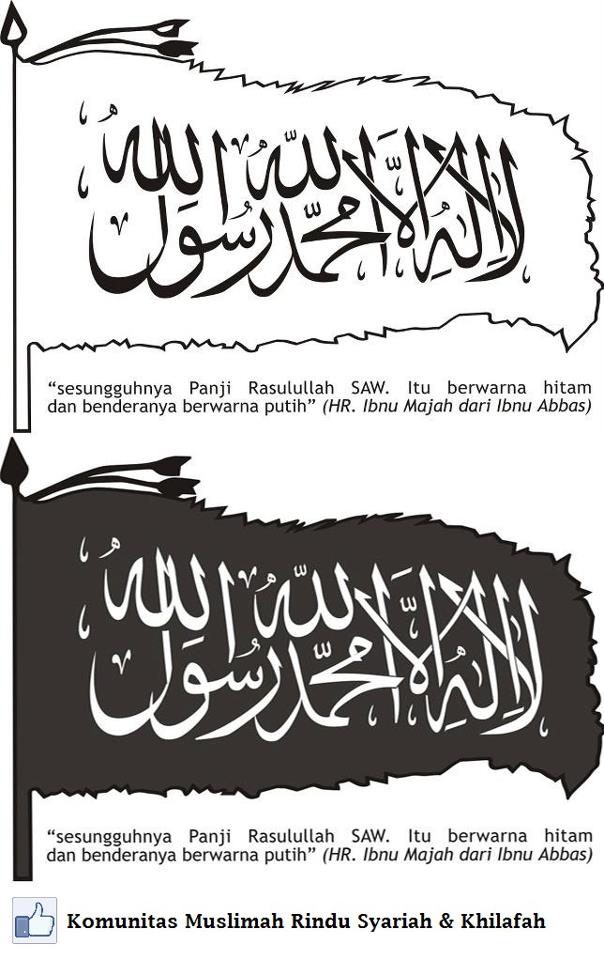 لا إله إلا الله محمد رسول الله
“sesungguhnya Panji Rasulullah SAW. Itu berwarna hitam
dan benderanya berwarna putih” (HR. Ibnu Majah dari Ibnu Abbas)
لا إله إلا الله محمد رسول الله
“sesungguhnya Panji Rasulullah SAW. Itu berwarna hitam
dan benderanya berwarna putih” (HR. Ibnu Majah dari Ibnu Abbas)
Komunitas Muslimah Rindu Syariah & Khilafah